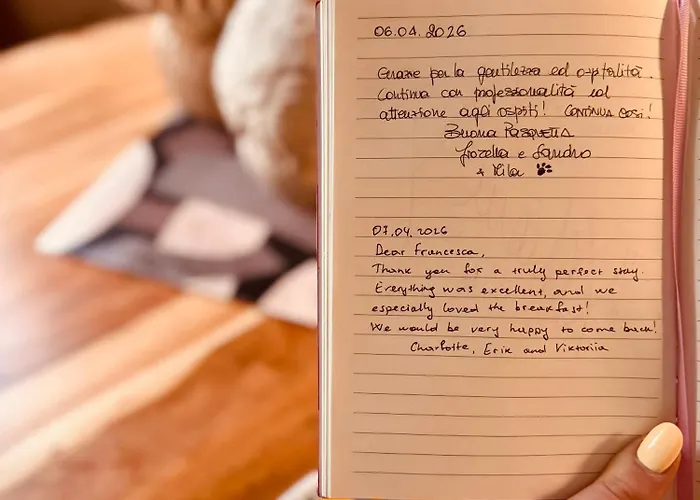 06.04.2026
Grazie per la gentilezza ed ospitalità.
Continua con professionalità ed
attenzione agli ospiti! CONTINUA COSÌ!
Buona PASQUETTA
Fiorella e Sandro
+ Mila
07.04.2026
Dear Francesca,
Thank you for a truly perfect stay.
Everything was excellent, and we
especially loved the breakfast!
We would be very happy to come back!
Charlotte, Erik and Viktoriia